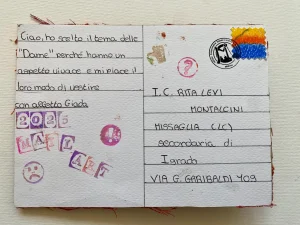 Ciao, ho scelto il tema delle
"Dame" perché hanno un
aspetto vivace e mi piace il
loro modo di vestire
con affetto Giada
2025
MAIL ART
I.C. RITA LEVI
MONTALCINI
MISSAGLIA (LC)
secondaria di
I grado
VIA G. GARIBALDI